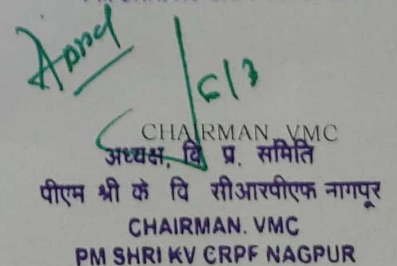 Appd
6/3
CHAIRMAN, VMC
अध्यक्ष, वि प्र. समिति
पीएम श्री के वि सीआरपीएफ नागपूर
CHAIRMAN. VMC
PM SHRI KV CRPF NAGPUR